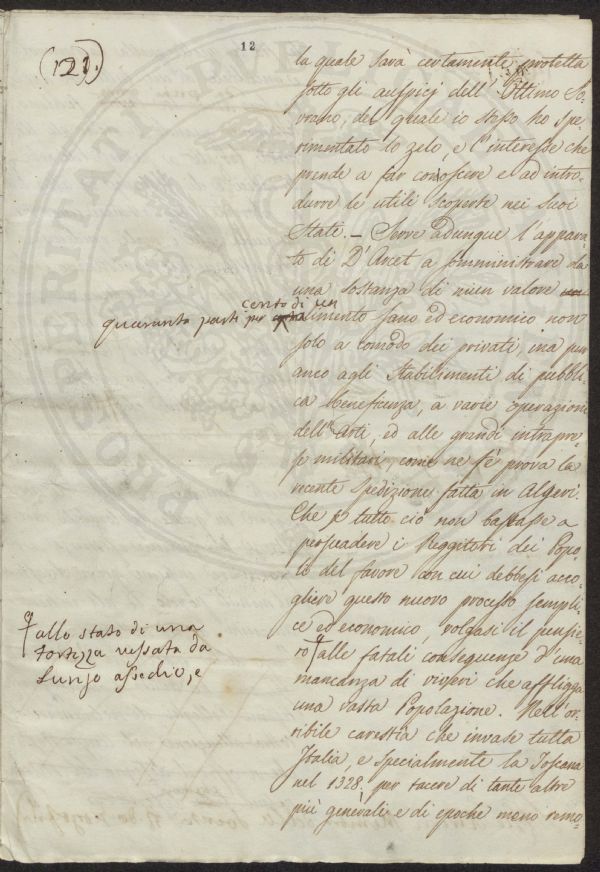 12
(121.)
la quale sarà certamente protetta
sotto gli auspicj dell' Ottimo So-
vrano, del quale io stesso ho spe-
rimentato lo zelo, e l'interesse che
prende a far conoscere e ad intro-
durre le utili scoperte nei suoi
Stati. - Serve adunque l'appara-
to di D'Arcet a somministrare da
una sostanza di niun valore un
cento di un
quaranta parti per
alimento sano ed economico non
solo a comodo dei privati, ma pur
anco agli Stabilimenti di pubbli-
ca beneficenza, a varie operazione
dell' Arti, ed alle grandi intrapre-
se militari, come ne fè prova la
recente spedizione fatta in Algeri.
Che se tutto ciò non bastasse a
persuadere i Reggitori dei Popo-
li del favore con cui debbesi acco-
gliere questo nuovo processo sempli-
ce ed economico, volgasi il pensie-
ro alle fatali conseguenze d'una
allo stato di una
fortezza vessata da
lungo assedio, e
mancanza di viveri che affligga
una vasta Popolazione. Nell' or-
ribile carestia che invase tutta
Italia, e specialmente la Toscana
nel 1328. per tacere di tante altre
più generali e di epoche meno remo-